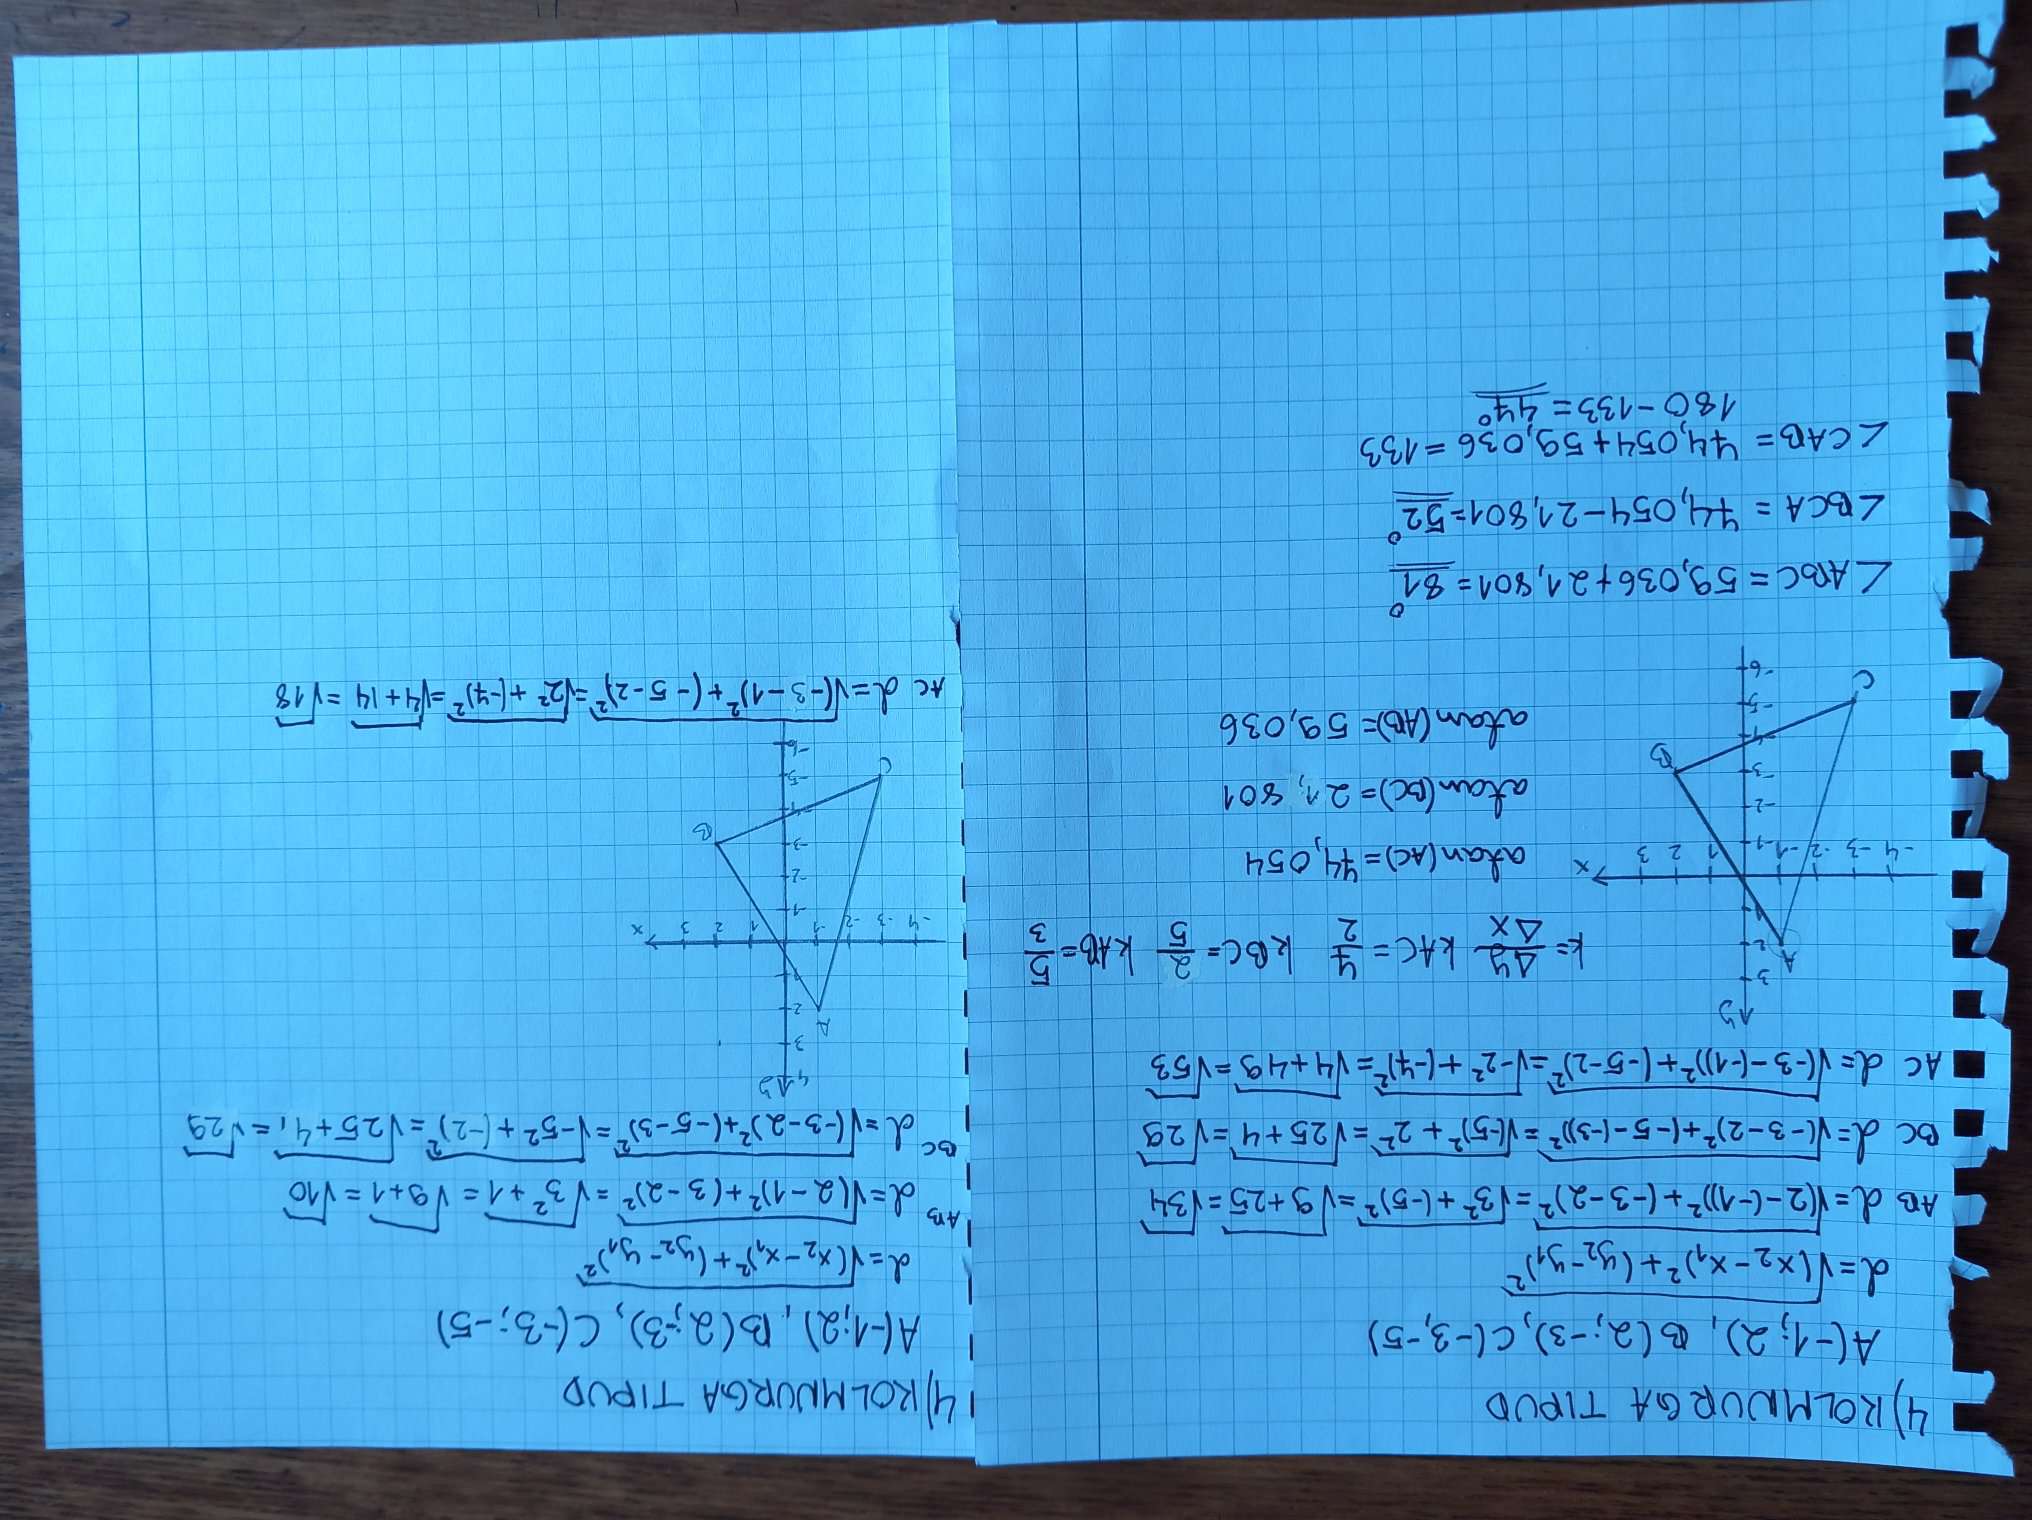 4) KOLMNURGA TIPUD
A(-1; 2), B(2; -3), C(-3, -5)
d=√(x₂-x₁)²+(y₂-y₁)²
AB d=√(2-(-1))²+(-3-2)²=√3²+(-5)²=√9+25=√34
BC d=√(-3-2)²+(-5-(-3))²=√(-5)²+2²=√25+4=√29
AC d=√(-3-(-1))²+(-5-2)²=√-2²+(-7)²=√4+49=√53
y
3
A 2
1
-4 -3 -2 -1 1 2 3 x
-1
-2
-3 B
-4
-5
C -6
k=Δy/Δx kAC=7/2 kBC=2/5 kAB=5/3
atan(AC)=74,054
atan(BC)=21,801
atan(AB)=59,036
∠ABC=59,036+21,801=81°
∠BCA=74,054-21,801=52°
∠CAB=74,054+59,036=133
180-133=47°
4) KOLMNURGA TIPUD
A(-1;2), B(2;-3), C(-3;-5)
d=√(x₂-x₁)²+(y₂-y₁)²
AB d=√(2-1)²+(3-2)²=√3²+1=√9+1=√10
BC d=√(-3-2)²+(-5-3)²=√-5²+(-2)²=√25+4=√29
4 y
3
A 2
1
-4 -3 -2 -1 1 2 3 x
-1
-2
-3 B
-4
C -5
-6
AC d=√(-3-1)²+(-5-2)²=√2²+(-7)²=√4+14=√18